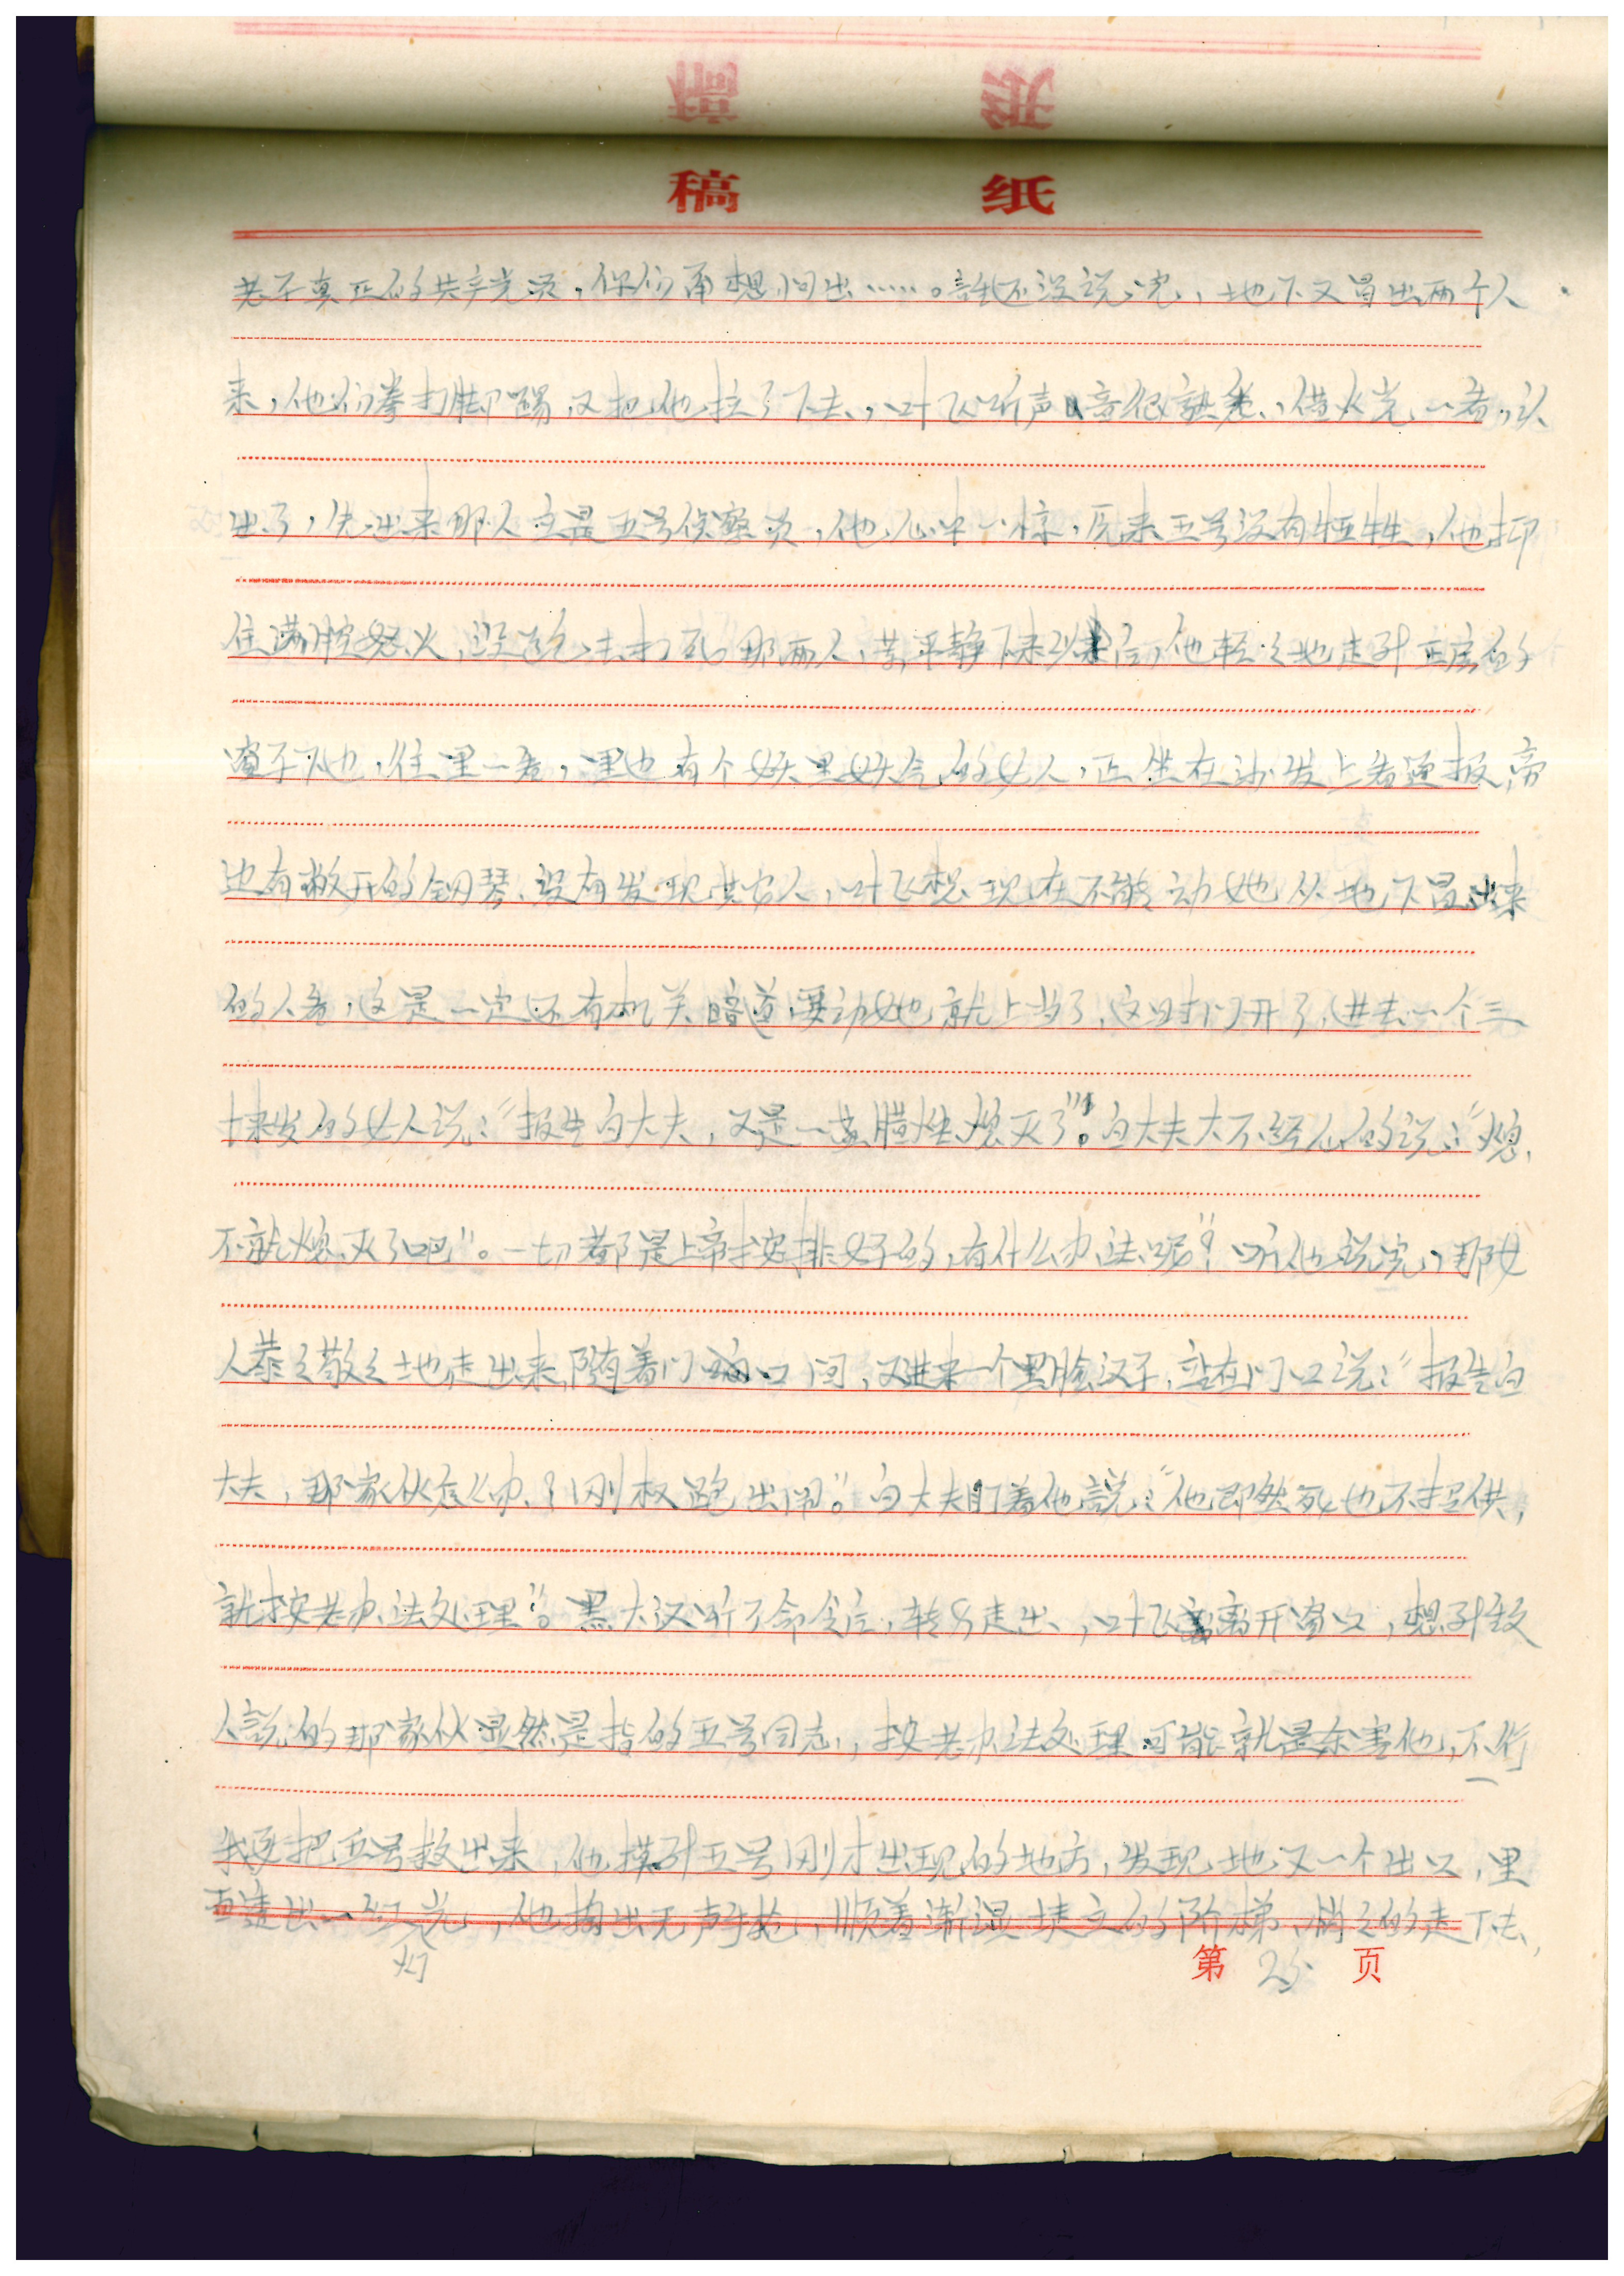 稿 纸
老子真正的共产党员,你们再想问出……。话还没说完,地下又冒出两个人
来,他们拳打脚踢,又把他拉了下去,叶飞听声音很熟悉,借火光一看,认
出了,先出来那人立是五号侦察员,他心中一惊,原来五号没有牺牲,他抑
住满腔怒火,没说去打死那两人,等平静下来以后,他轻々地走到正房的
窗子下也,往里一看,里也有个妖里妖气的女人,正坐在沙发上看画报,旁
边有敞开的钢琴,没有发现其它人,叶飞想现在不能动她从地下冒出来
的人看,这是一定还有机关暗道要动她就上当了,这时门开了,进去一个三
十来岁的女人说:“报告白大夫,又是一盏腊烛熄灭了”。白大夫大不经心的说:“熄
不就熄灭了吧”。一切都是上帝按排好的,有什么办法呢?”听他说完,那女
人恭々敬々地走出来,随着门响口间,又进来一个黑脸汉子,站在门口说:“报告白
大夫,那家伙怎么办?刚权跑出闹。”白大夫盯着他说:“他即然死也不招供,
就按老办法处理”。黑大汉听了命令后,转身走出,叶飞离开窗口,想到敌
人说的那家伙显然是指的五号同志,按老办法处理可能就是杀害他,不行
我要把五号救出来,他摸到五号刚才出现的地方,发现地又一个出口,里
面透出一红光,他掏出无声手枪,顺着渐湿 的阶梯,悄々的走下去,
灯
第 25 页